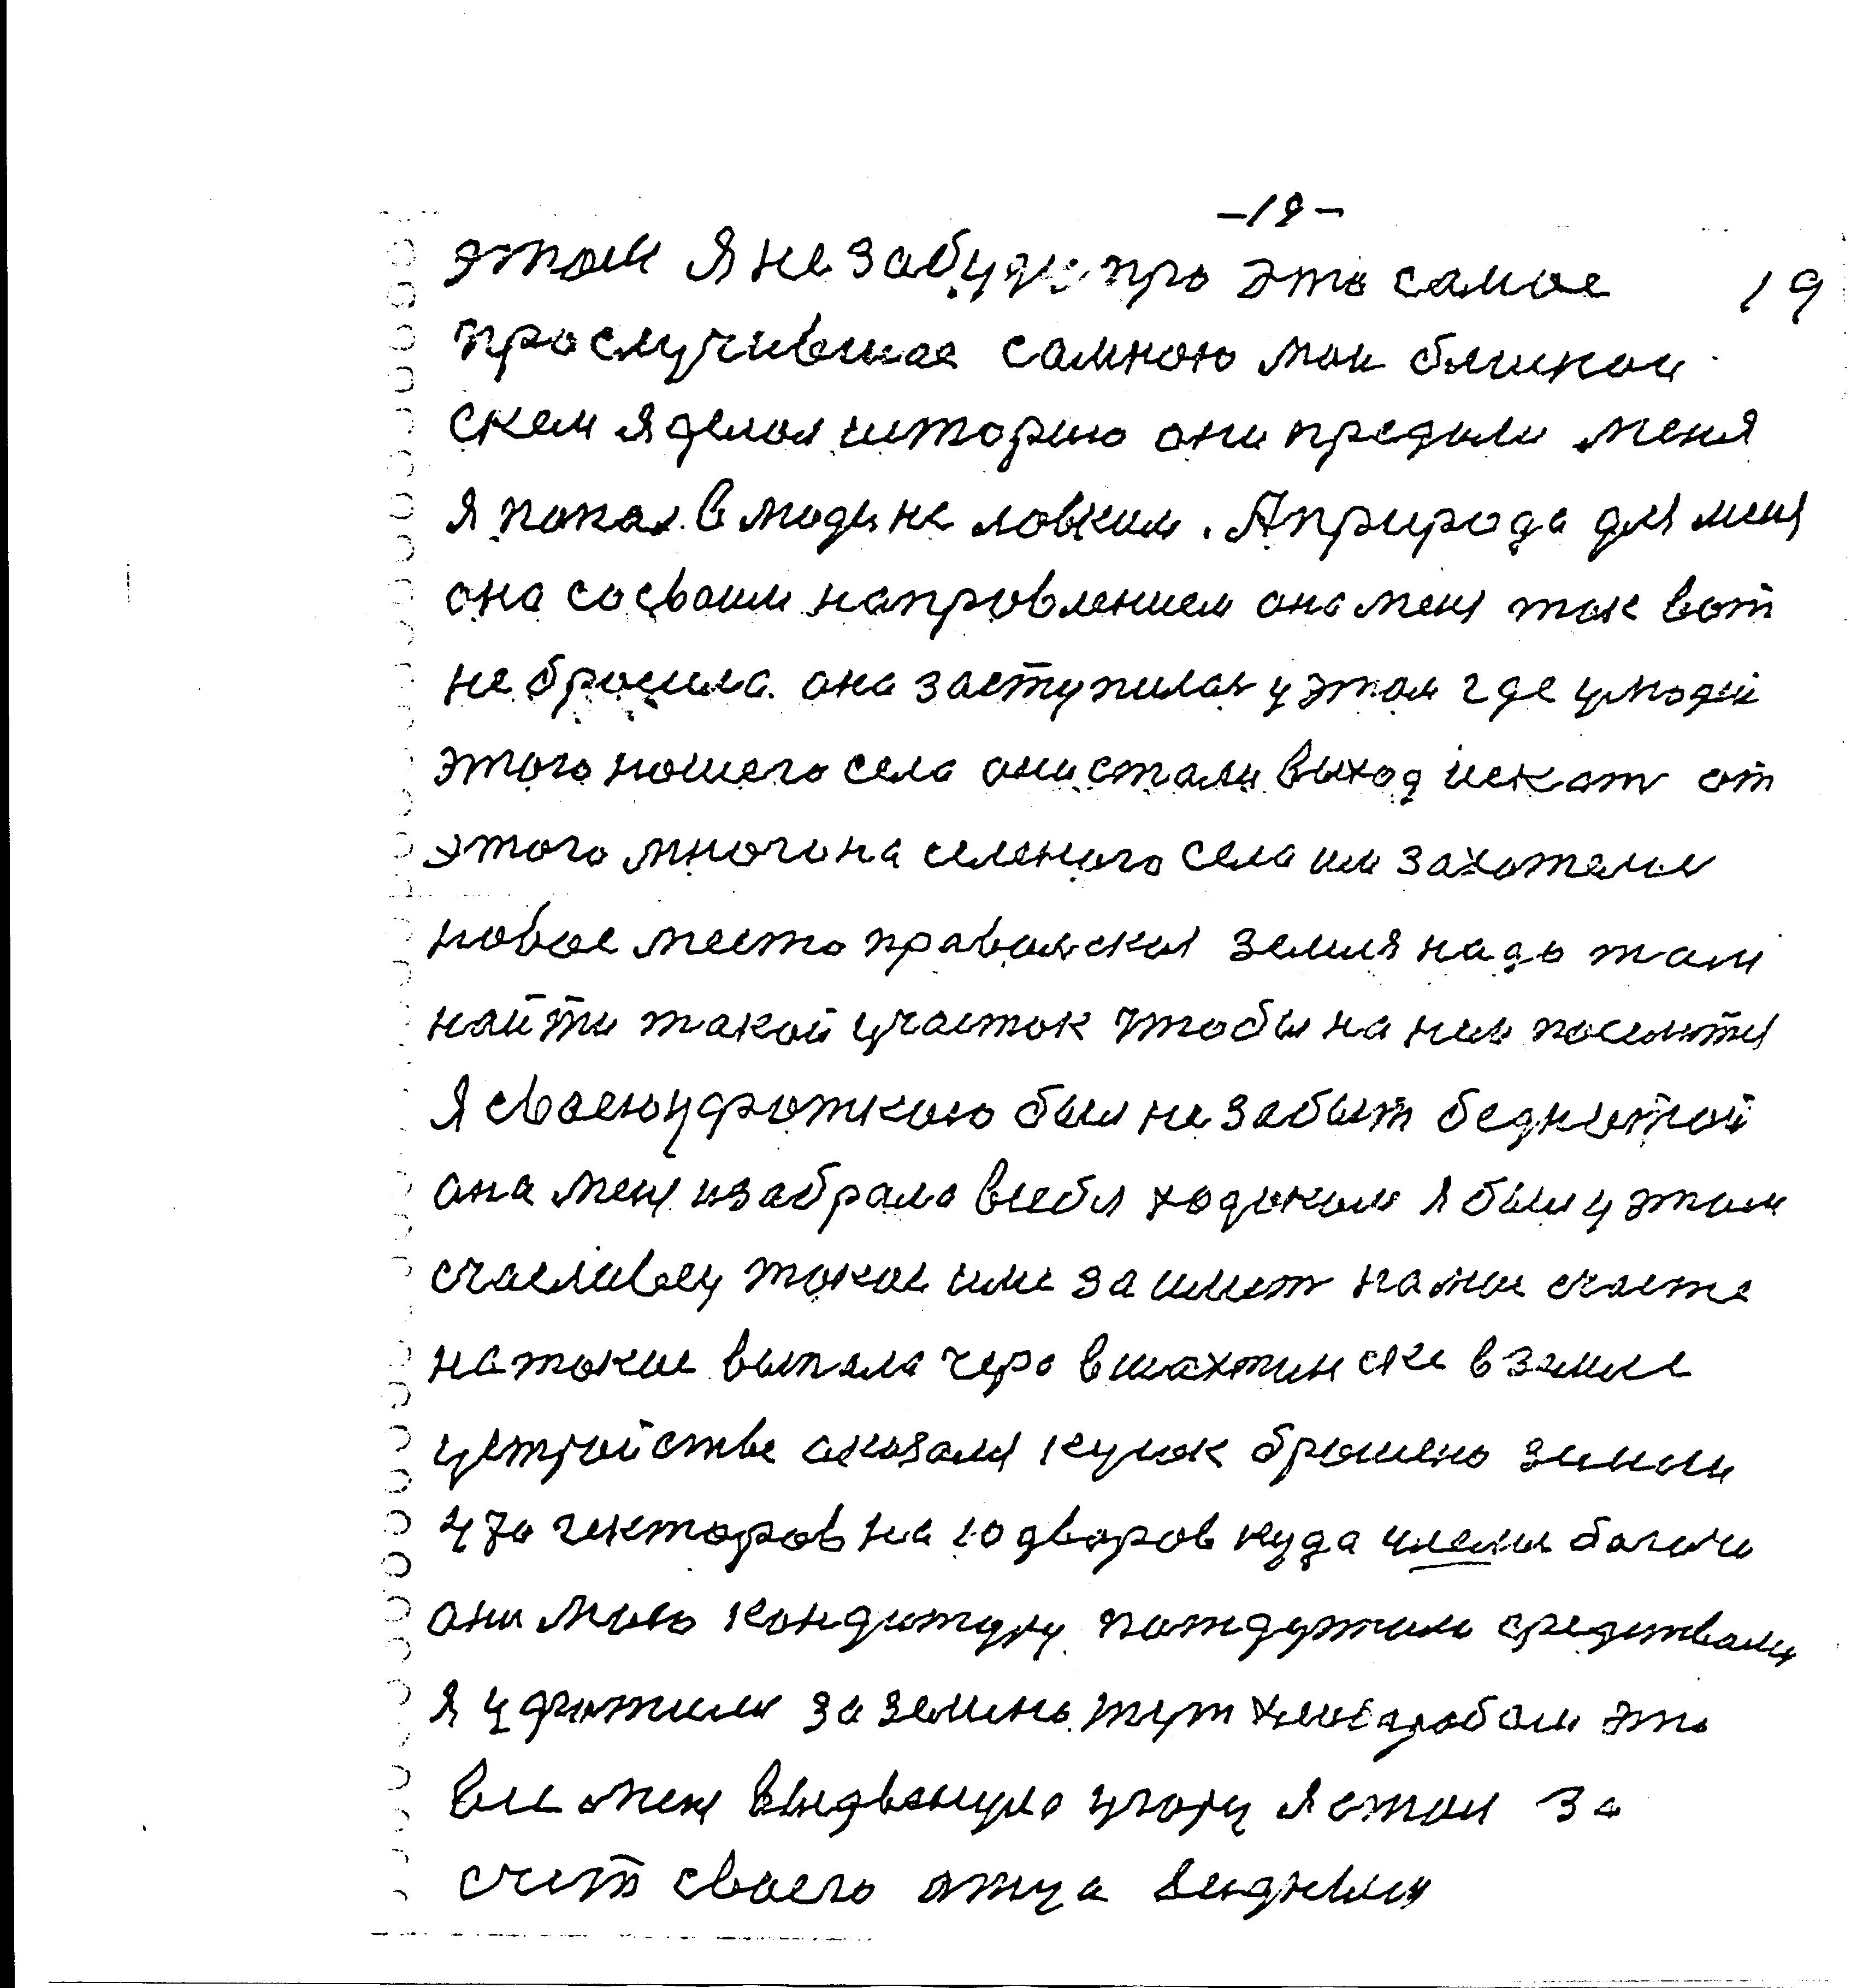 -19-
этом я не забуду про это самое 19
прослучившае самною мои блискои
скем я делал историю они предали меня
я попал в люди не ловким. А природа для меня
она со своим направлением она меня так вот
не бросила она заступилась у этом где у людей
этого нашего села они стали выход искать от
этого многона селеного села им захотелось
новое место правальская земля надо там
найти такой участок чтобы на нем поселится
Я своею удоткою был не забыт беднотой
она меня изабрала всебя ходоком я был у этом
счасливец такое име за имет на мое счасте
на такие выпала через в шахтинске в земле
устройстве оказался кусок брошено земли
470 гекторов на 10 дворов куда члены богачи
они мою кондитуру потдержали средствами
я у за землею тут хлеборобом это
все меня выдвинуло у гору я стал за
счет своего отца видным